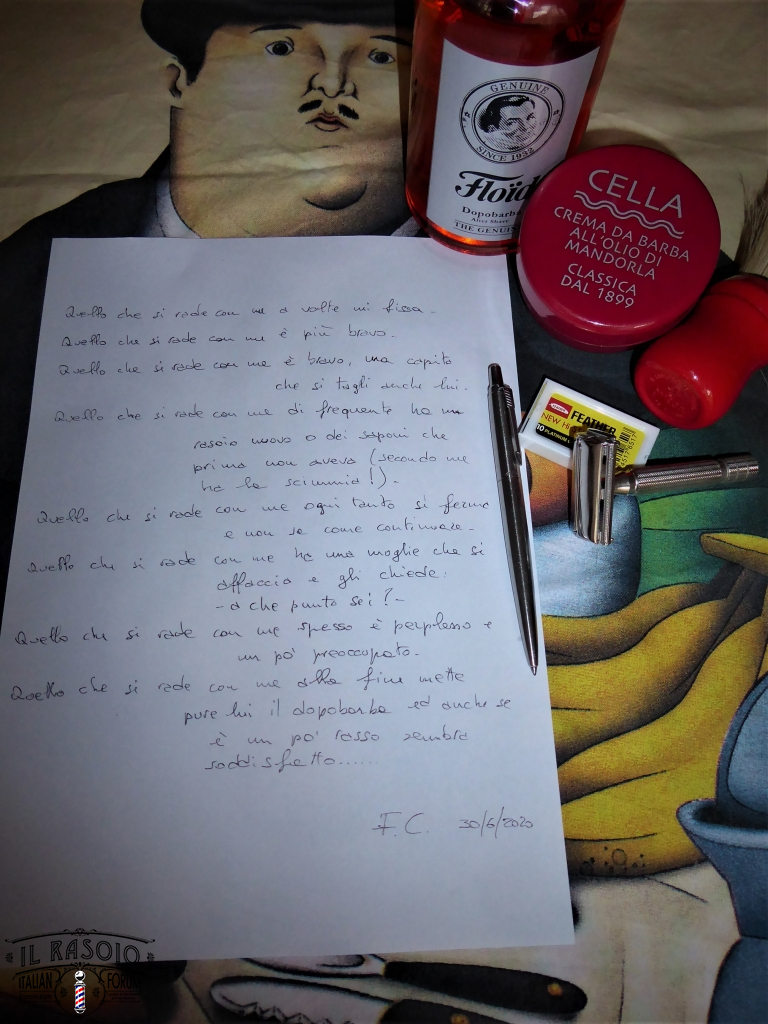 GENUINE
SINCE 1932
Floïd
Dopobarba
After Shave
THE GENUINE
CELLA
CREMA DA BARBA
ALL'OLIO DI
MANDORLA
CLASSICA
DAL 1899
FEATHER
NEW HI
10 PLATINUM
Quello che si rade con me a volte mi fissa.
Quello che si rade con me è più bravo.
Quello che si rade con me è bravo, ma capita
che si tagli anche lui.
Quello che si rade con me di frequente ha un
rasoio nuovo o dei saponi che
prima non aveva (secondo me
ha la scimmia!).
Quello che si rade con me ogni tanto si ferma
e non sa come continuare.
Quello che si rade con me ha una moglie che si
affaccia e gli chiede:
- a che punto sei? -
Quello che si rade con me spesso è perplesso e
un po' preoccupato.
Quello che si rade con me alla fine mette
pure lui il dopobarba ed anche se
è un po' rosso sembra
soddisfatto......
F.C. 30/6/2020
IL RASOIO
ITALIAN FORUM